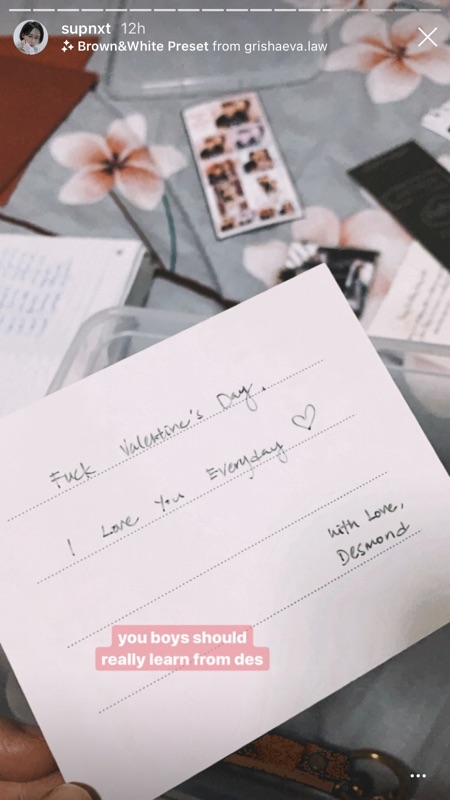 supnxt 12h
Brown&White Preset from grishaeva.law
Fuck Valentine's Day.
I Love You Everyday
With Love,
Desmond
you boys should
really learn from des